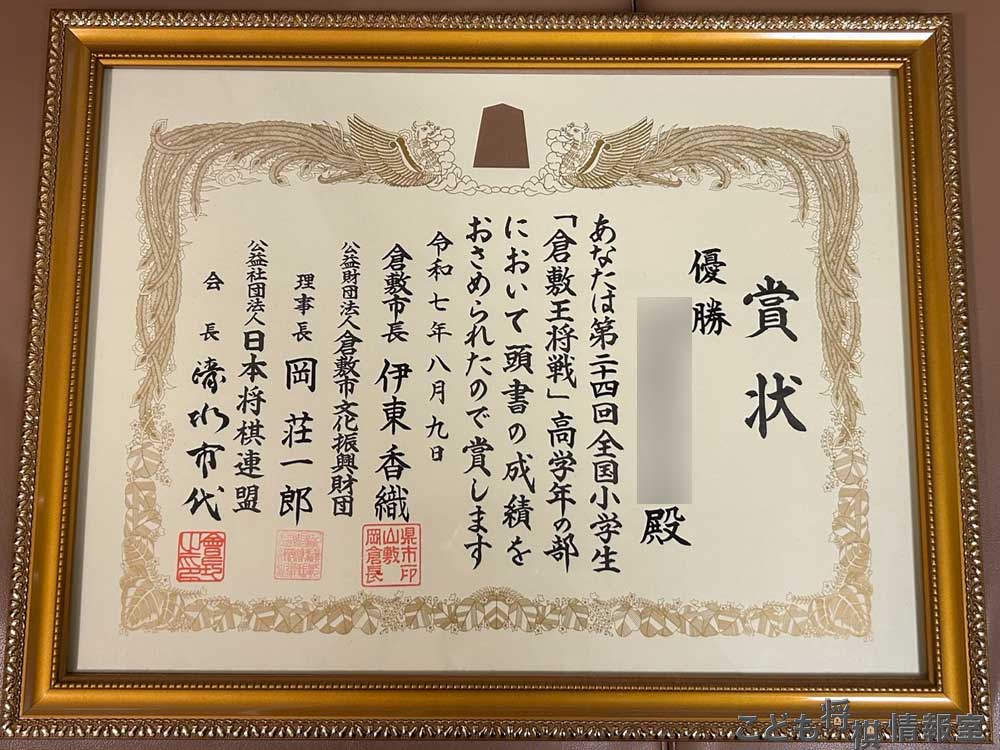 賞状
優勝
殿
あなたは第二十四回全国小学生
「倉敷王将戦」高学年の部
において頭書の成績を
おさめられたので賞します
令和七年八月九日
倉敷市長 伊東香織
公益財団法人倉敷市文化振興財団
理事長 岡荘一郎
公益社団法人日本将棋連盟
会長 清水市代
岡山県倉敷市長印
こども将棋情報室